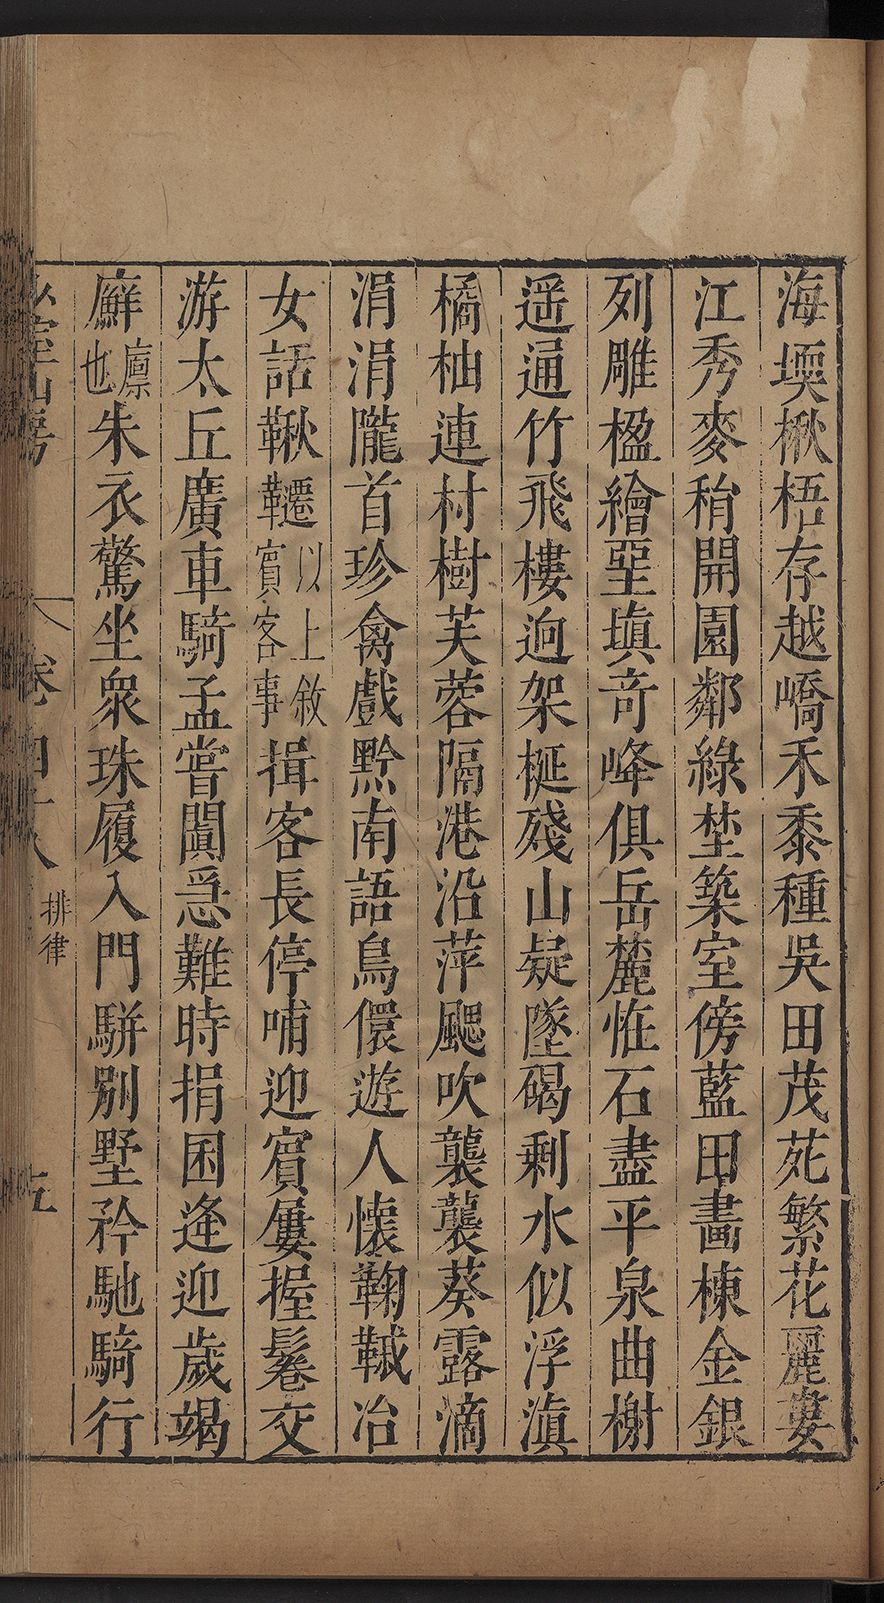 海堧楸梧存越嶠禾黍種吳田茂苑繁花麗婁
江秀麥稍開園鄰綠埜築室傍藍田畫棟金銀
列雕楹繪堊塡奇峰俱岳麓恠石盡平泉曲榭
遥通竹飛樓逈架梴殘山疑墜碣剩水似浮滇
橘柚連村樹芙蓉隔港沿萍颸吹襲襲葵露滴
涓涓隴首珍禽戲黔南語鳥儇遊人懷鞠韍冶
女話鞦韆以上敘賓客事揖客長停哺迎賓屢握鬈交
游太丘廣車騎孟嘗闐急難時捐囷逢迎歲竭
廯廩也朱衣驚坐衆珠履入門駢別墅矜馳騎行
山房 卷四十八 排律 五